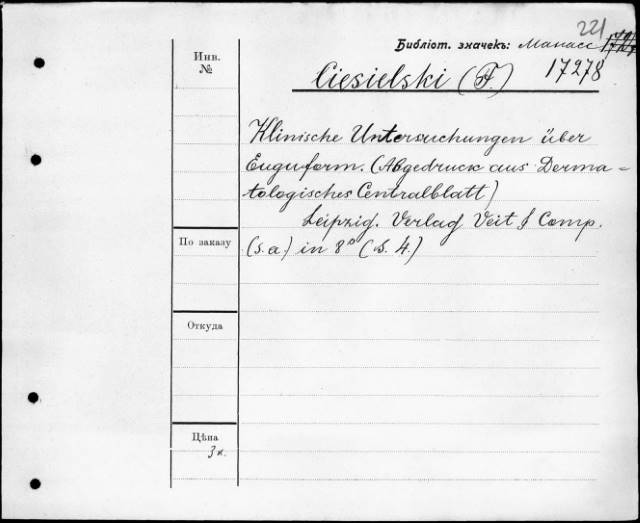 221
Библіот. значекъ: Манасс
17278
Инв.
№
Ciesielski (F.)
Klinische Untersuchungen über
Euguform. (Abgedruck aus Derma-
tologisches Centralblatt)
Leipzig. Verlag Veit & Comp.
(s.a.) in 8° (S. 4.)
По заказу
Откуда
Цѣна
3 к.